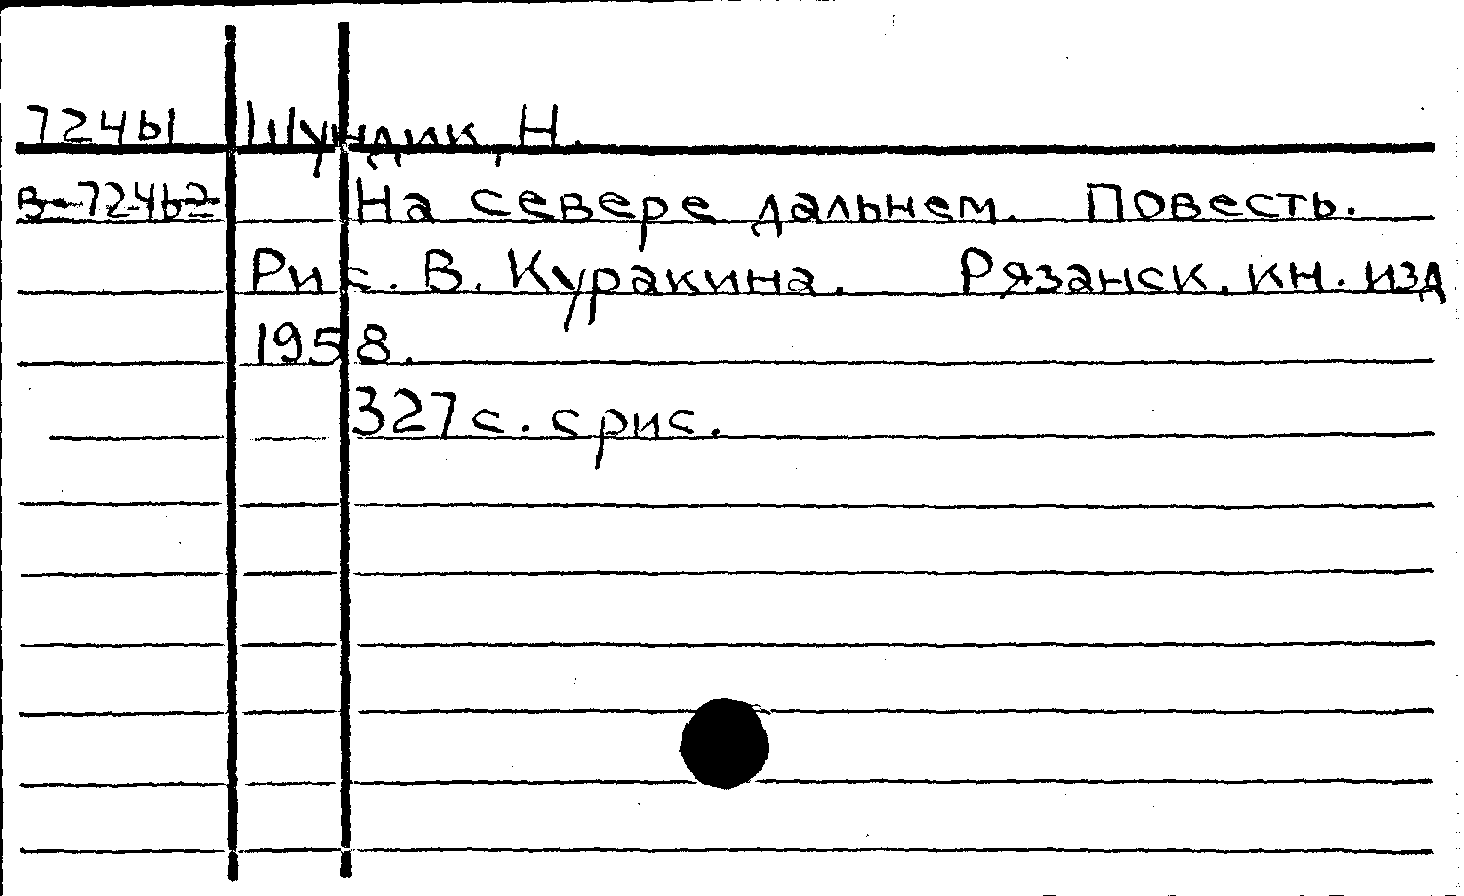 72461 Шундик, Н.
В-72462 На севере дальнем. Повесть.
Рис. В. Куракина. Рязанск. кн. изд
1958.
327 с. с рис.